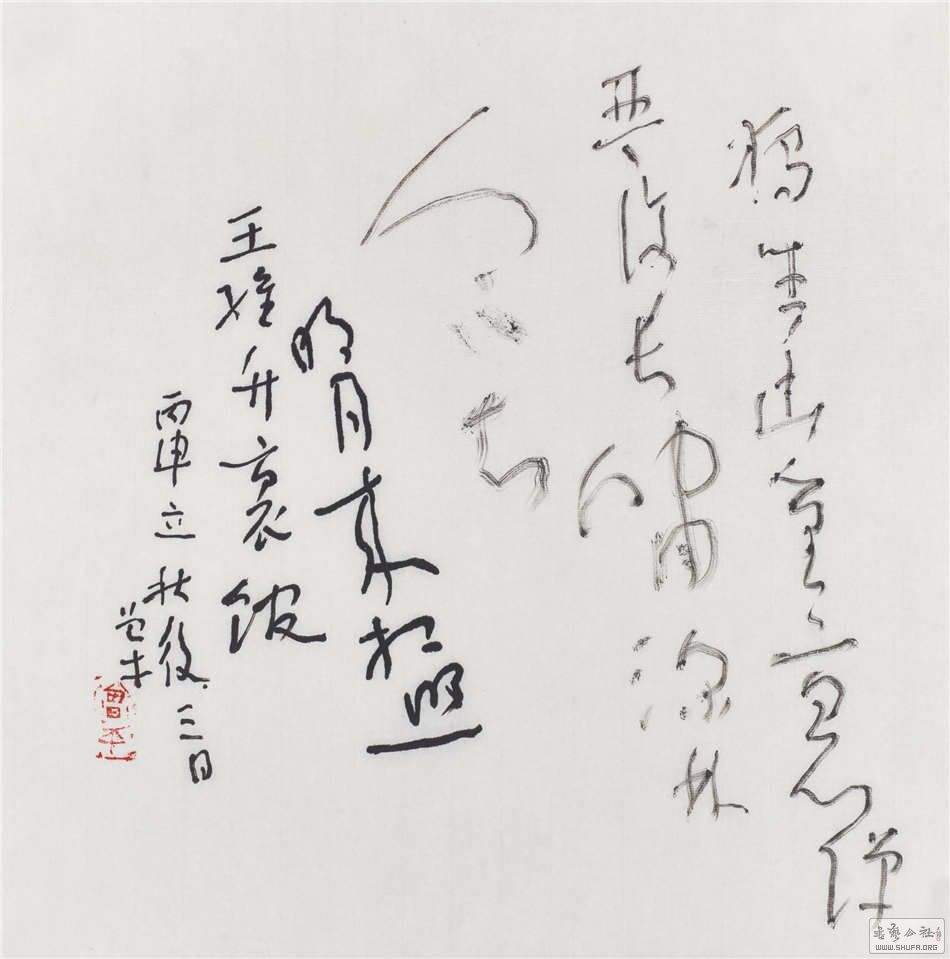 獨坐幽篁裏彈
琴復長嘯深林
人不知
明月來相照
王維竹裏館
丙申立秋後三日
書藝公社
WWW.SHUFA.ORG